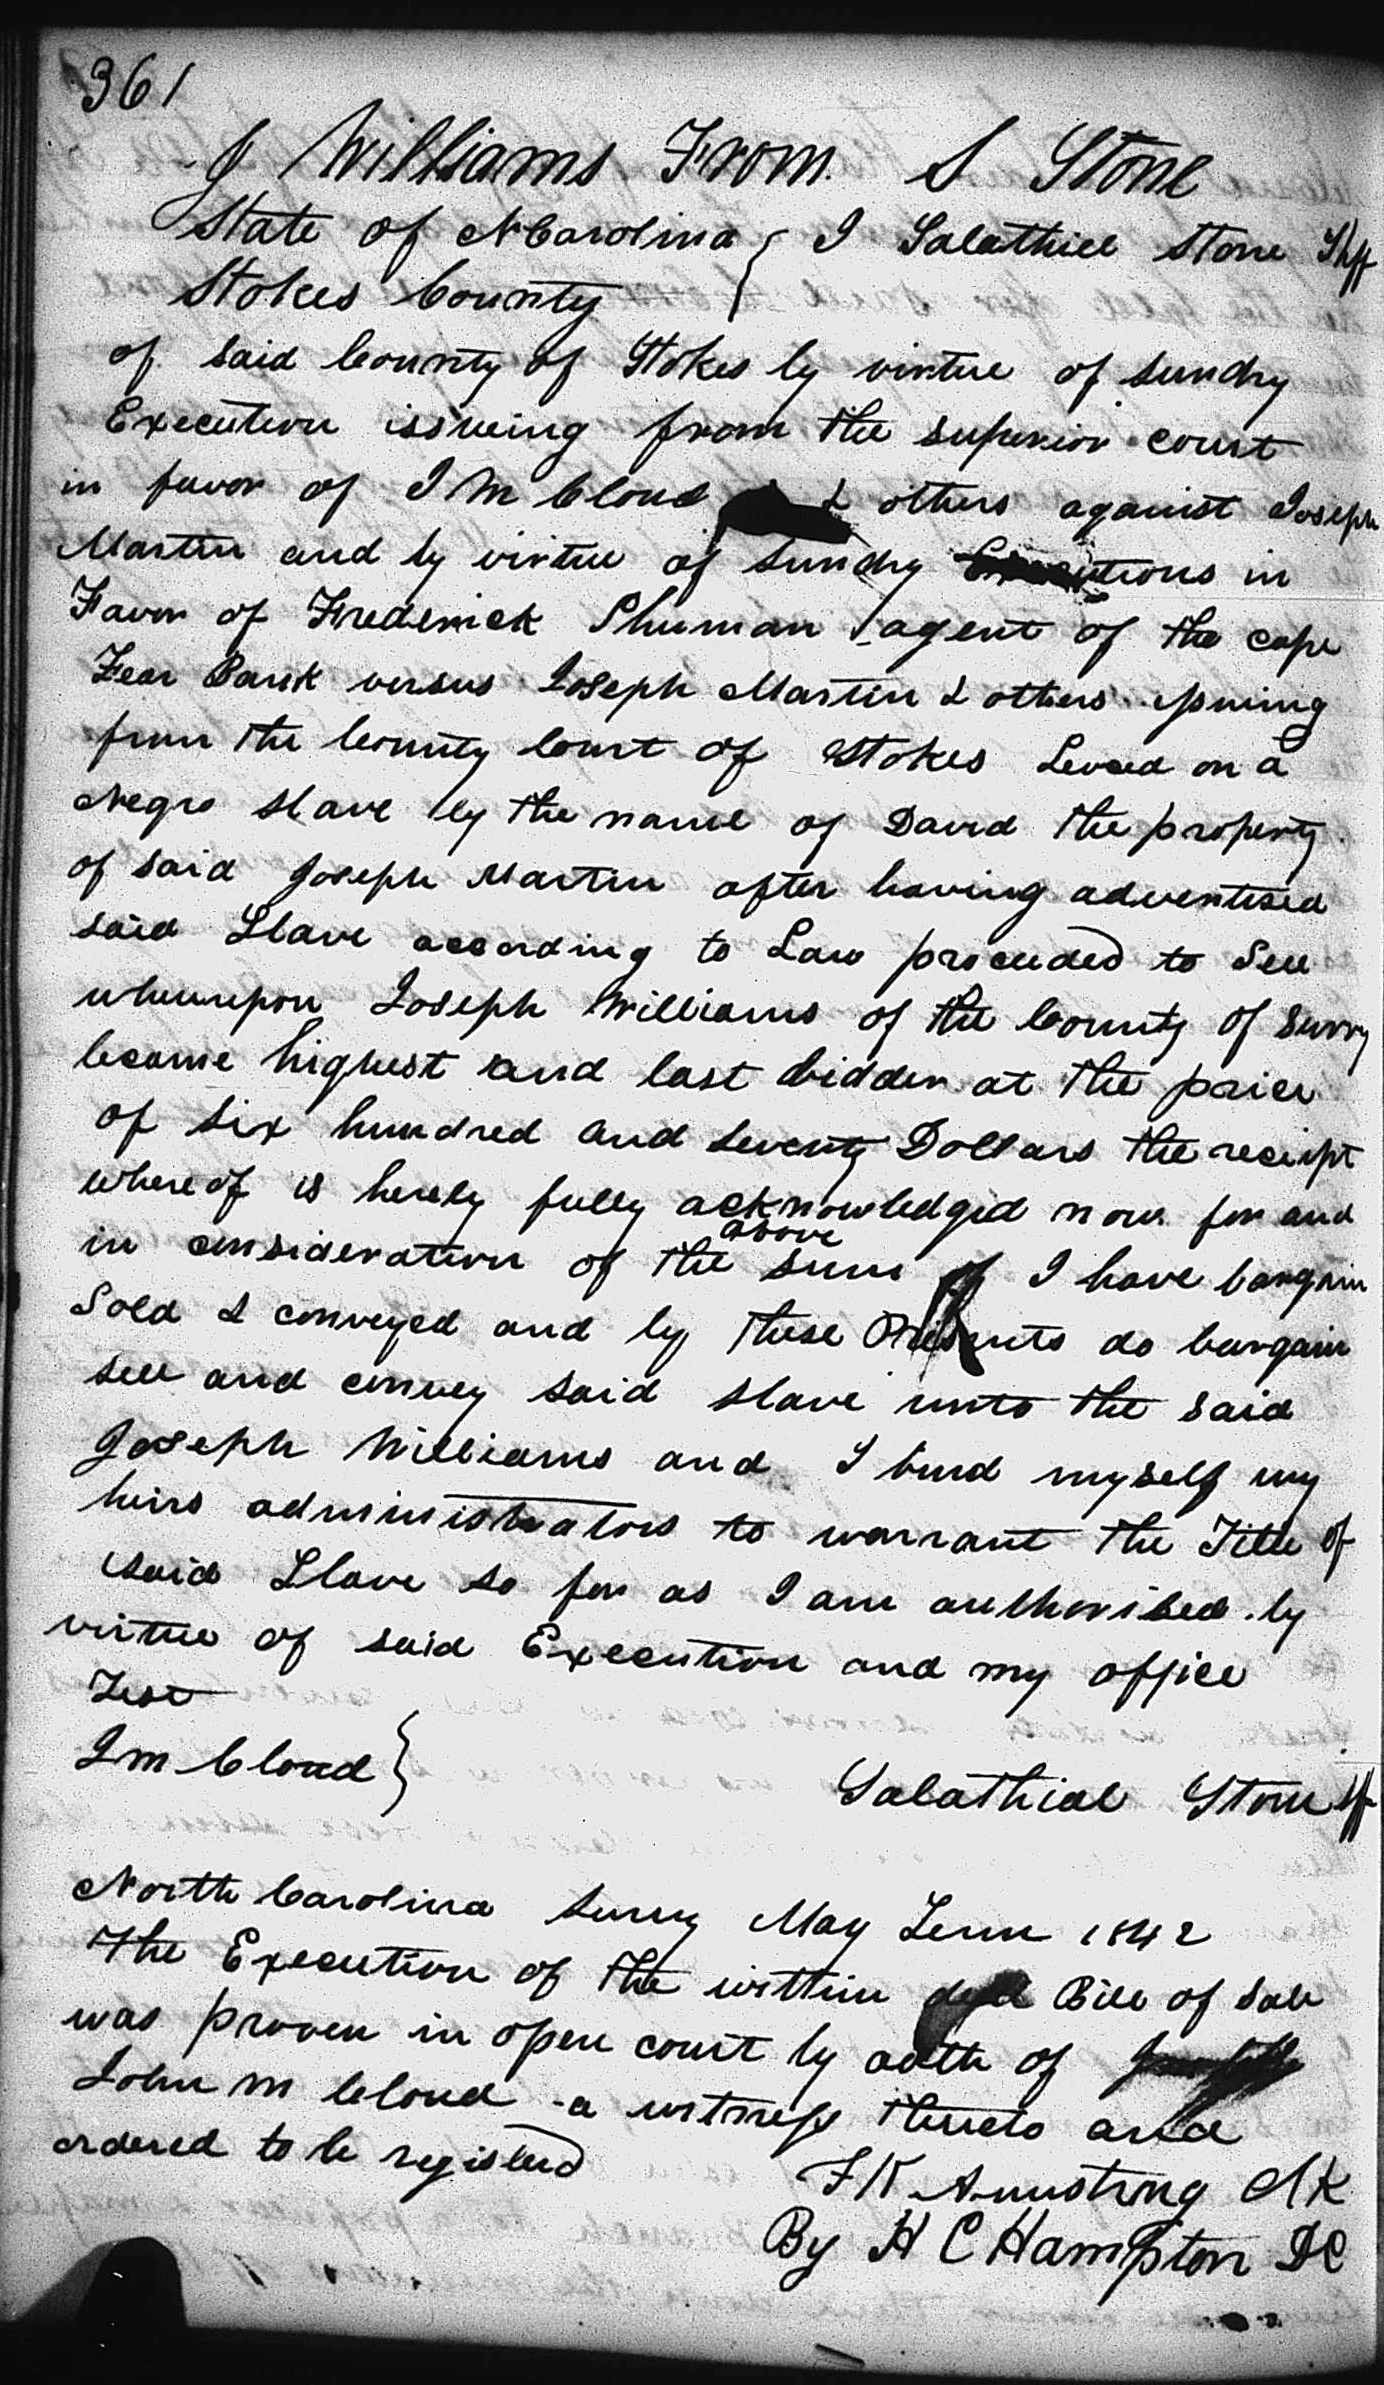 361
J Williams From S Stone
State of N Carolina { I Salathiel Stone Shff
Stokes County
of said County of Stokes by virtue of sundry
Execution issueing from the superior court
in favor of J M Cloud & others against Joseph
Martin and by virtue of sundry Executions in
Favor of Frederick Shuman agent of the cape
Fear Bank versus Joseph Martin & others issuing
from the County Court of Stokes Levied on a
Negro slave by the name of David the property
of said Joseph Martin after having advertised
said Slave according to Law proceeded to Sell
whereupon Joseph Williams of the County of Surry
became highest and last bidder at the price
of six hundred and seventy Dollars the receipt
whereof is hereby fully acknowledged now for and
in consideration of the above sum of I have bargain
Sold & conveyed and by these Presents do bargain
sell and convey said slave unto the said
Joseph Williams and I bind myself my
heirs administrators to warrant the Title of
said Slave so far as I am authorised by
virtue of said Execution and my office
Test
J M Cloud }
Salathial Stone Sff
North Carolina Surry May Term 1842
The Execution of the within Bill of Sale
was proven in open court by oath of
John M Cloud a witness thereto and
ordered to be registerd
F K Armstrong Clk
By H C Hampton DC